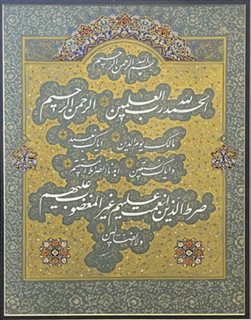 بسم الله الرحمن الرحیم
الحمد لله رب العلمین الرحمن الرحیم
مالک یوم الدین ایاک نعبد
وایاک نستعین اهدنا الصراط المستقیم
صرط الذین انعمت علیهم غیر المغضوب علیهم
ولا الضالین